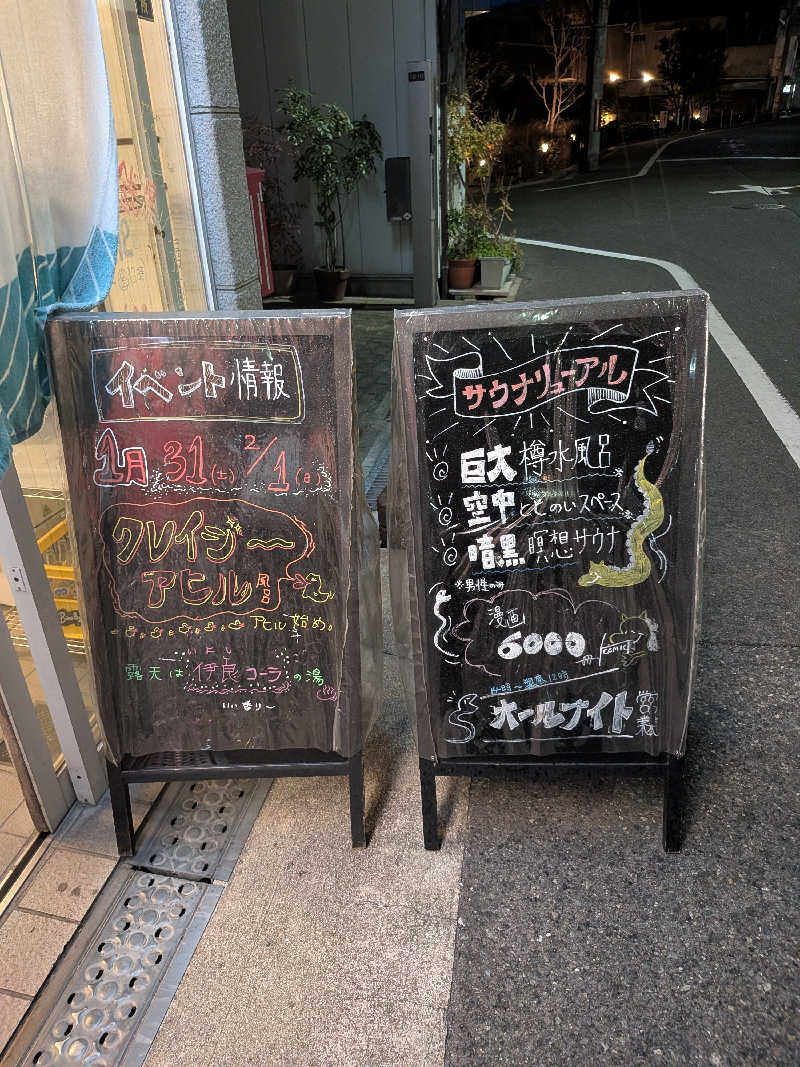 イベント情報
1月31(土) 2/1(日)
クレイジ〜
アヒル風呂
アヒル始め。
いよし
露天は伊良コーラの湯
いい香り〜
サウナリューアル
巨大樽水風呂
空中ととのいスペース
暗黒瞑想サウナ
※男性のみ
漫画
6000
COMIC
14時〜翌昼12時
オールナイト営業